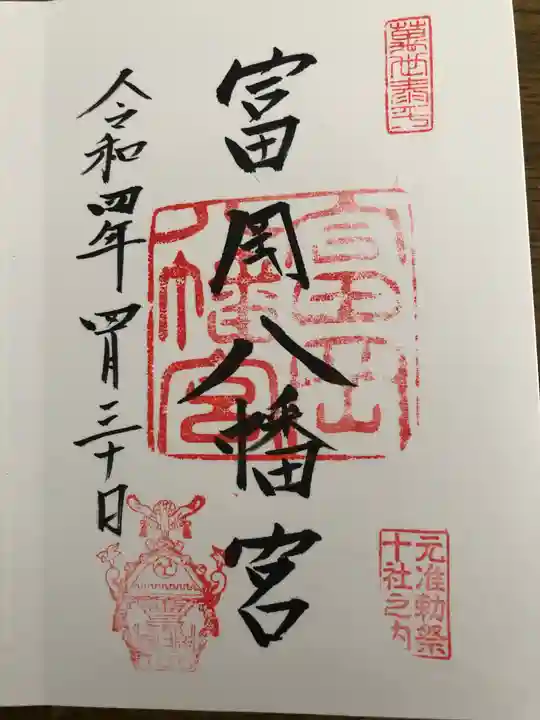 萬世泰平
元准勅祭
十社之内
富岡八幡宮
富岡
八幡宮
令和四年四月三十日